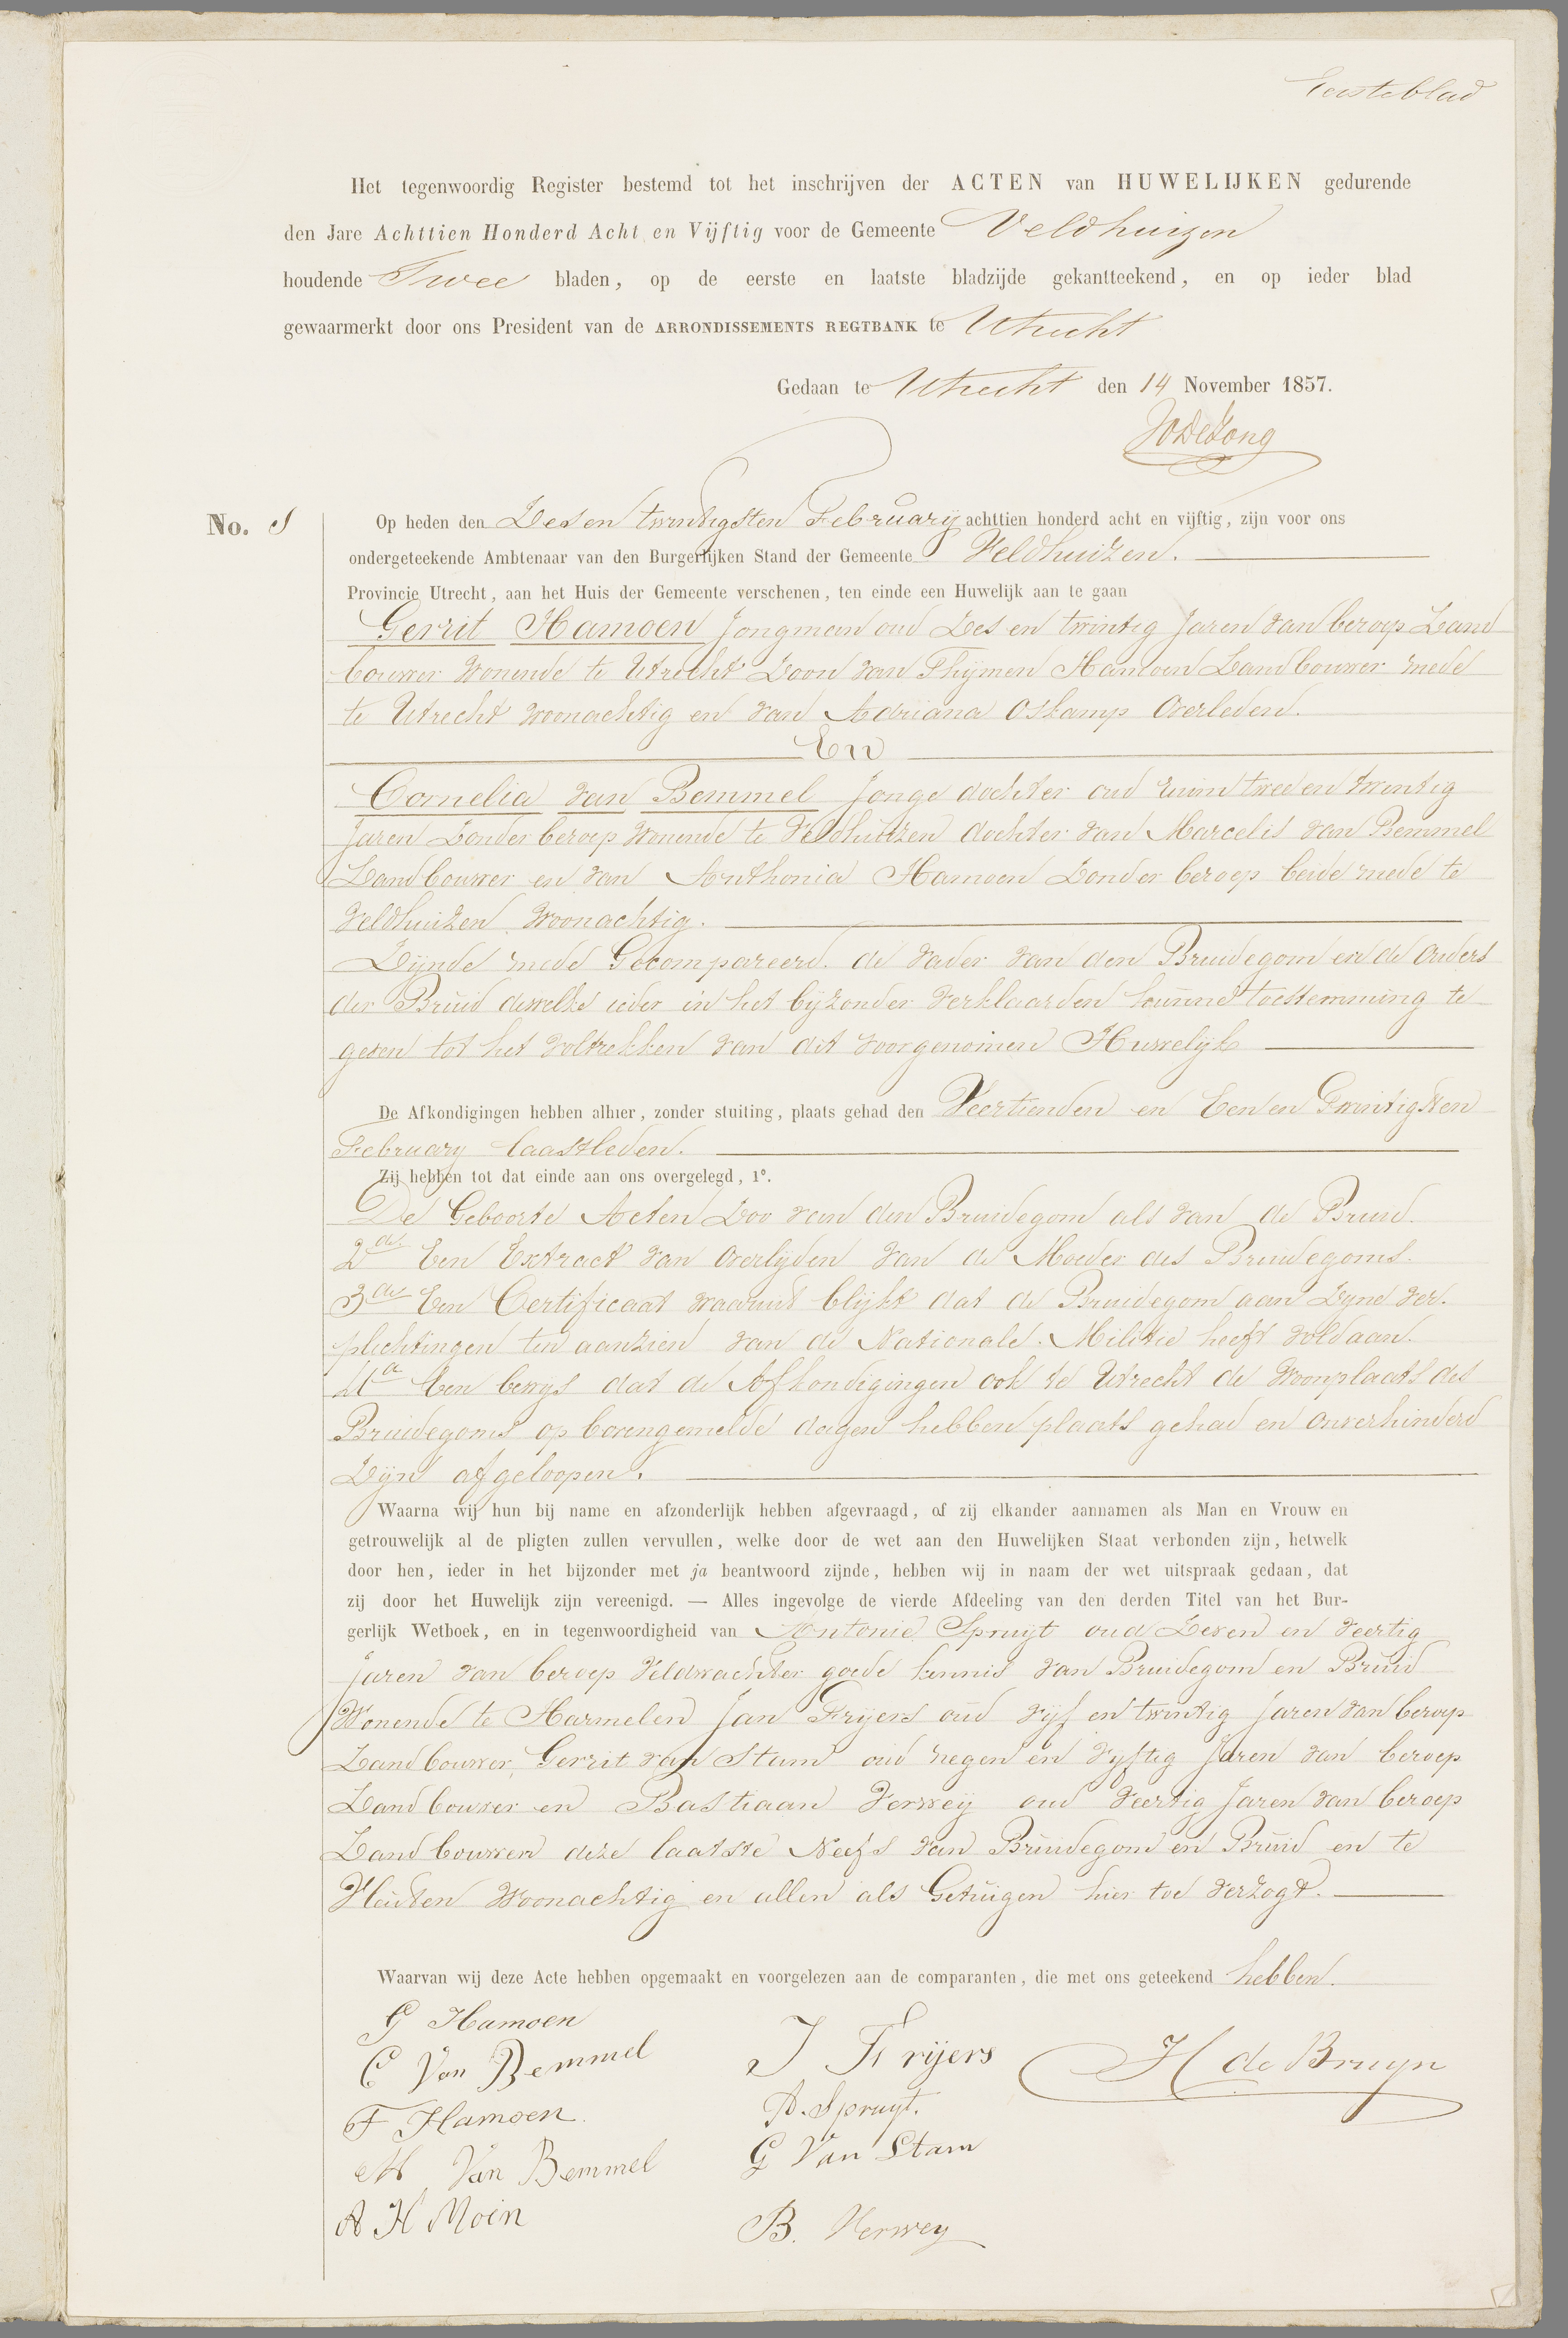 Eersteblad
Het tegenwoordig Register bestemd tot het inschrijven der ACTEN van HUWELIJKEN gedurende
den Jare Achttien Honderd Acht en Vijftig voor de Gemeente Veldhuizen
houdende Twee bladen, op de eerste en laatste bladzijde gekantteekend, en op ieder blad
gewaarmerkt door ons President van de ARRONDISSEMENTS REGTBANK te Utrecht
Gedaan te Utrecht den 14 November 1857.
JodeJong
No. 1
Op heden den Zes en twintigsten February achttien honderd acht en vijftig, zijn voor ons
ondergeteekende Ambtenaar van den Burgerlijken Stand der Gemeente Veldhuizen.
Provincie Utrecht, aan het Huis der Gemeente verschenen, ten einde een Huwelijk aan te gaan
Gerrit Hamoen Jongman oud Zes en twintig Jaren van beroep Land
bouwer Wonende te Utrecht Zoon van Thijmen Hamoen Landbouwer mede
te Utrecht woonachtig en van Adriana Oskamp Overleden.
En
Cornelia van Bemmel Jonge dochter oud ruim twee en twintig
Jaren Zonder beroep Wonende te Veldhuizen dochter van Marcelis van Bemmel
Landbouwer en van Anthonia Hamoen Zonder beroep beide mede te
Veldhuizen Woonachtig.
Zijnde mede Gecompareerd. de Vader van den Bruidegom en de Ouders
der Bruid dewelke ieder in het bijzonder verklaarden hunne toestemming te
geven tot het voltrekken van dit voorgenomen Huwelijk
De Afkondigingen hebben alhier, zonder stuiting, plaats gehad den Veertienden en Een en Twintigsten
February laastleden.
Zij hebben tot dat einde aan ons overgelegd, 1°.
De Geboorte Acten Zoo van den Bruidegom als van de Bruid.
2de Een Extract van Overlijden van de Moeder des Bruidegoms.
3de Een Certificaat waaruit blijkt dat de Bruidegom aan Zijne ver.
plichtingen ten aanzien van de Nationale Militie heeft voldaan.
4de Een bewijs dat de Afkondigingen ook te Utrecht de Woonplaats des
Bruidegoms op bovengemelde dagen hebben plaats gehad en onverhinderd
Zijn afgeloopen.
Waarna wij hun bij name en afzonderlijk hebben afgevraagd, of zij elkander aannamen als Man en Vrouw en
getrouwelijk al de pligten zullen vervullen, welke door de wet aan den Huwelijken Staat verbonden zijn, hetwelk
door hen, ieder in het bijzonder met ja beantwoord zijnde, hebben wij in naam der wet uitspraak gedaan, dat
zij door het Huwelijk zijn vereenigd. — Alles ingevolge de vierde Afdeeling van den derden Titel van het Bur-
gerlijk Wetboek, en in tegenwoordigheid van Antonie Spruyt oud Zeven en veertig
Jaren van beroep Veldwachter goede kennis van Bruidegom en Bruid
Wonende te Harmelen Jan Frijers oud vijf en twintig Jaren van beroep
Landbouwer, Gerrit van Stam oud negen en vijftig Jaren van beroep
Landbouwer en Bastiaan Verweij oud veertig Jaren van beroep
Landbouwer deze laatste Neefs van Bruidegom en Bruid en te
Vleuten Woonachtig en allen als Getuigen hier toe verzogt.
Waarvan wij deze Acte hebben opgemaakt en voorgelezen aan de comparanten, die met ons geteekend hebben.
G Hamoen
C Van Bemmel
F Hamoen
M Van Bemmel
A H Moin
J Frijers
A. Spruyt.
G Van Stam
B. Verwey
H de Bruyn